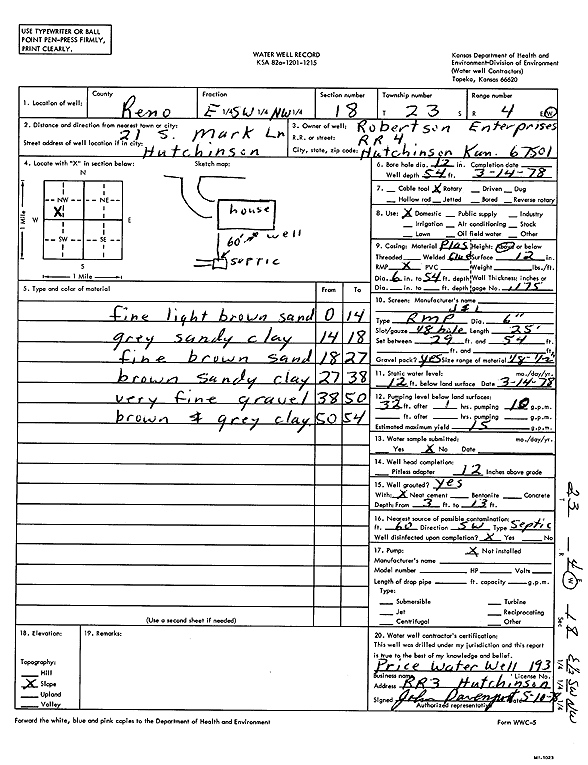 USE TYPEWRITER OR BALL
POINT PEN-PRESS FIRMLY,
PRINT CLEARLY.
WATER WELL RECORD
KSA 82a-1201-1215
Kansas Department of Health and
Environment-Division of Environment
(Water well Contractors)
Topeka, Kansas 66620
1. Location of well: County Reno Fraction E 1/4 SW 1/4 NW 1/4 Section number 18 Township number T 23 S Range number R 4 E/W
2. Distance and direction from nearest town or city:
21 S. Mark Ln
Street address of well location if in city:
Hutchinson
3. Owner of well: Robertson Enterprises
R.R. or street: RR 4
City, state, zip code: Hutchinson Kan. 67501
4. Locate with "X" in section below:
N
NW NE
X
W E
SW SE
S
1 Mile
1 Mile
Sketch map:
house
60' well
septic
6. Bore hole dia. 12 in. Completion date
Well depth 54 ft. 3-14-78
7. Cable tool X Rotary Driven Dug
Hollow rod Jetted Bored Reverse rotary
8. Use: X Domestic Public supply Industry
Irrigation Air conditioning Stock
Lawn Oil field water Other
9. Casing: Material Plas Height: Above or below
Threaded Welded Glue Surface 12 in.
RMP X PVC Weight lbs./ft.
Dia. 6 in. to 54 ft. depth Wall Thickness: inches or
Dia. in. to ft. depth gage No. .175
5. Type and color of material From To
fine light brown sand 0 14
grey sandy clay 14 18
fine brown sand 18 27
brown sandy clay 27 38
very fine gravel 38 50
brown & grey clay 50 54
(Use a second sheet if needed)
10. Screen: Manufacturer's name
Type RMP Dia. 6"
Slot/gauze 48 hole Length 25'
Set between 29 ft. and 54 ft.
ft. and ft.
Gravel pack? yes Size range of material 48-1/2
11. Static water level: mo./day/yr.
12 ft. below land surface Date 3-14-78
12. Pumping level below land surfaces:
32 ft. after 1 hrs. pumping 10 g.p.m.
ft. after hrs. pumping g.p.m.
Estimated maximum yield 15 g.p.m.
13. Water sample submitted: mo./day/yr.
Yes X No Date
14. Well head completion:
Pitless adapter 12 Inches above grade
15. Well grouted? yes
With: X Neat cement Bentonite Concrete
Depth: From 3 ft. to 13 ft.
16. Nearest source of possible contamination:
ft. 60 Direction SW Type Septic
Well disinfected upon completion? X Yes No
17. Pump: X Not installed
Manufacturer's name
Model number HP Volts
Length of drop pipe ft. capacity g.p.m.
Type:
Submersible Turbine
Jet Reciprocating
Centrifugal Other
18. Elevation:
Topography:
Hill
X Slope
Upland
Valley
19. Remarks:
20. Water well contractor's certification:
This well was drilled under my jurisdiction and this report
is true to the best of my knowledge and belief.
Price Water Well 193
Business name License No.
Address RR3 Hutchinson
Signed John Davenport Date 5-10-78
Authorized representative
T 23 R 4 W Sec 18 E/2 SW NW 1/4 1/4 1/4
Forward the white, blue and pink copies to the Department of Health and Environment
Form WWC-5